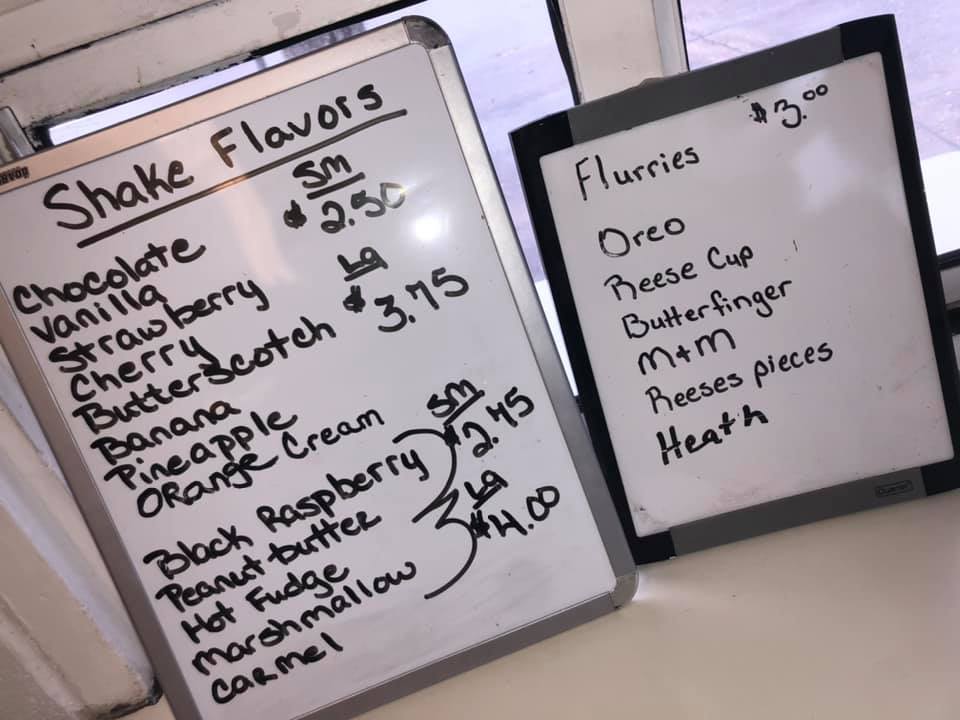 Shake Flavors
SM
$2.50
Chocolate
Vanilla
Strawberry
Lg
$3.75
Cherry
Butterscotch
Banana
Pineapple
ORange Cream
SM
$2.75
Black Raspberry
Peanut butter
Lg
$4.00
Hot Fudge
marshmallow
carmel
BOARD
$3.00
Flurries
Oreo
Reese Cup
Butterfinger
M+M
Reeses pieces
Heath
Quartet